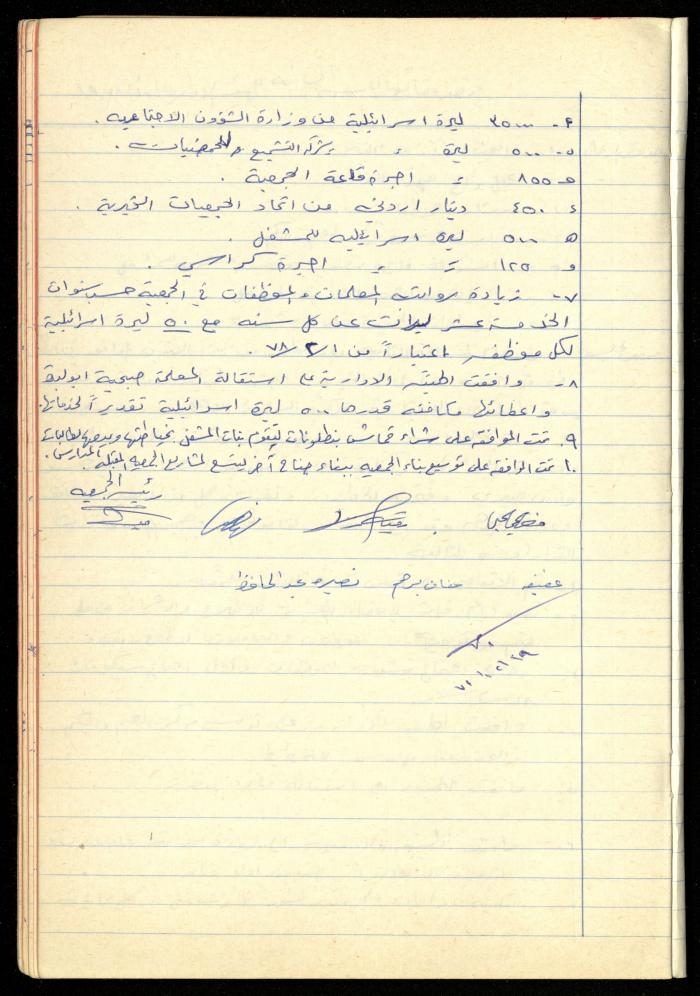 ٣٥٠٠٠ ليرة اسرائيلية من وزارة الشؤون الاجتماعيه .
٥٠٠٠ ليرة = = شركة التشميع والحمضيات .
٨٥٥ = اجرة قاعة الجمعية .
٤٥٠ دينار اردني من اتحاد الجمعيات الخيرية .
ه ٥٠٠ ليره اسرائيليه للمشغل .
و - ١٢٥ = = اجرة كراسي .
٧- زيادة رواتب المعلمات والموظفات في الجمعية حسب سنوات
الخدمة عشر ليرات عن كل سنه مع ٥٠ ليرة اسرائيلية
لكل موظف اعتباراً من ٧٨/٢/١ .
٨- وافقت الهيئة الادارية على استقالة المعلمة صبحية
واعطائها مكافئه قدرها ٥٠٠ ليرة اسرائيلية تقديراً لخدماتها .
٩. تمت الموافقه على شراء قماش بنطلونات ليقوم بنات المشغل بخياطتها وبيعها لطالبات المدارس .
١٠. تمت الموافقه على توسيع بناء الجمعيه ببناء جناح آخر ليتسع لمشاريع الجمعيه المقبله .
رئيسة الجمعيه
عفيفه حنان برهم نصيره عبد الحافظ